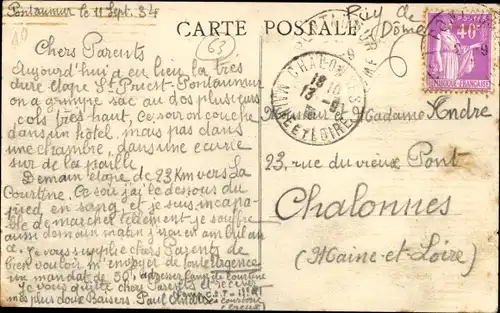 Pontaumur le 11 Sept. 34
CARTE POSTALE
Puy de
Dôme
63
40c
POSTES
RÉPUBLIQUE FRANÇAISE
CHALONNES
18 10
13 -9
MAINE ET LOIRE
Chers Parents
Aujourd'hui a eu lieu la très
dure étape St Priest-Pontaumur
on a grimpé sac au dos plusieurs
cols très haut, ce soir on couche
dans un hôtel, mais pas dans
une chambre, dans une écurie
sur de la paille.
Demain étape de 23 Km vers La
Courtine. Ce soir j'ai le dessous du
pied en sang et je suis incapa-
ble de marcher tellement je souffre
aussi demain matin j'irai en ambulan
ce. Je vous supplie chers Parents de
bien vouloir m'envoyer de toute urgence
un mandat de 50f. adresser Camp de Courtine
Je vous quitte chers Parents et recevez
mes plus doux Baisers. Paul
La Courtine
(Creuse)
Monsieur Madame Andre
23, rue du vieux Pont
Chalonnes
(Maine-et-Loire)